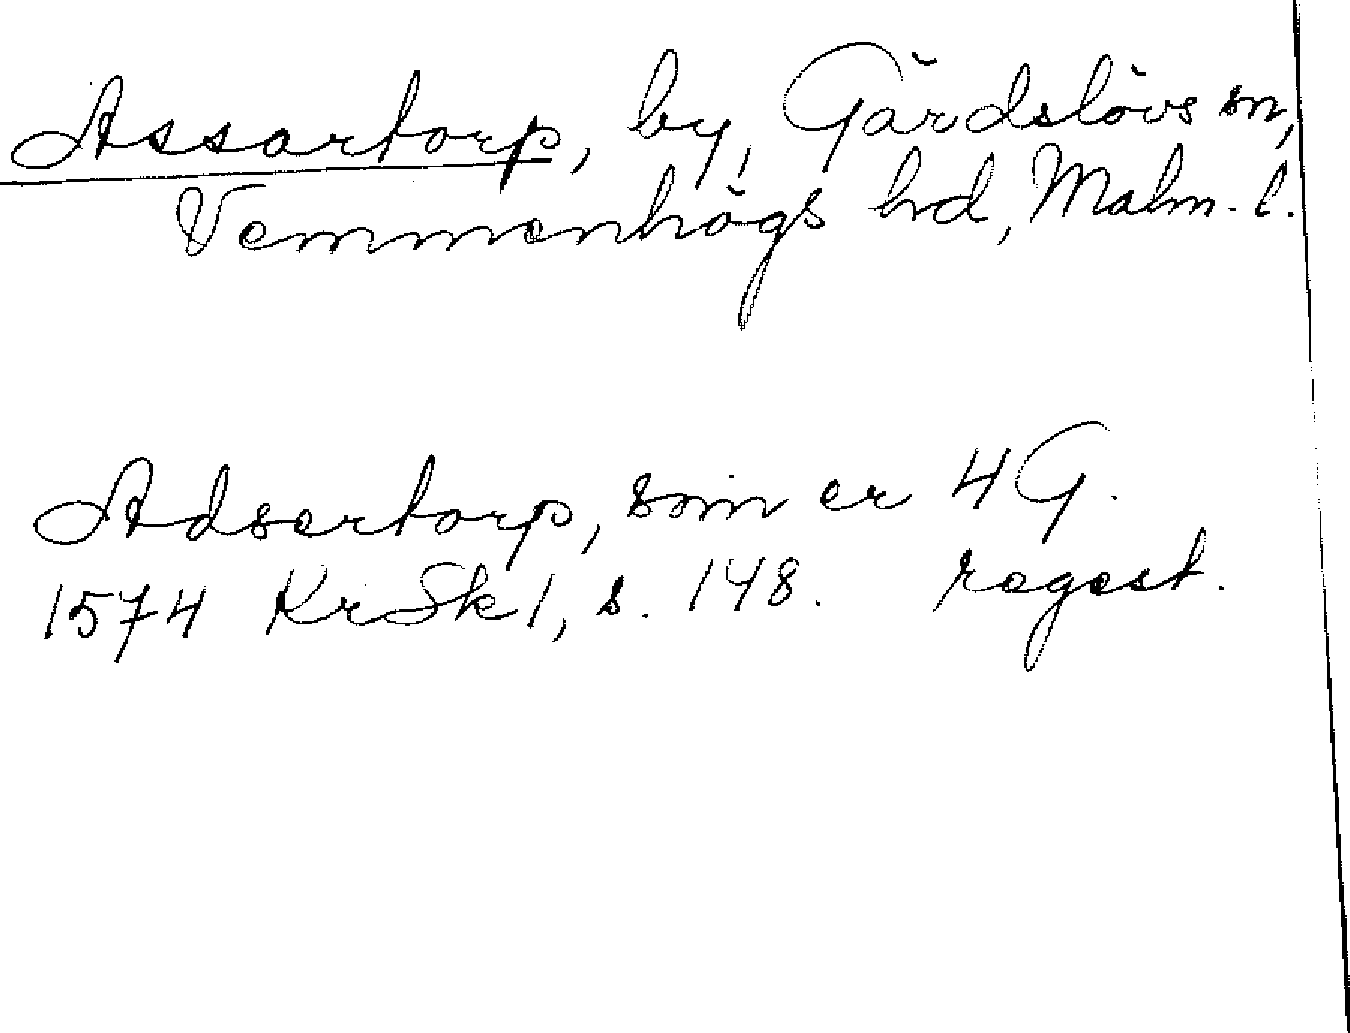 Assartorp, by, Gärdslövs sn,
Vemmenhögs hd, Malm. l.
Adsertorp, som er 4 G.
1574 KrSk 1, s. 148. regest.